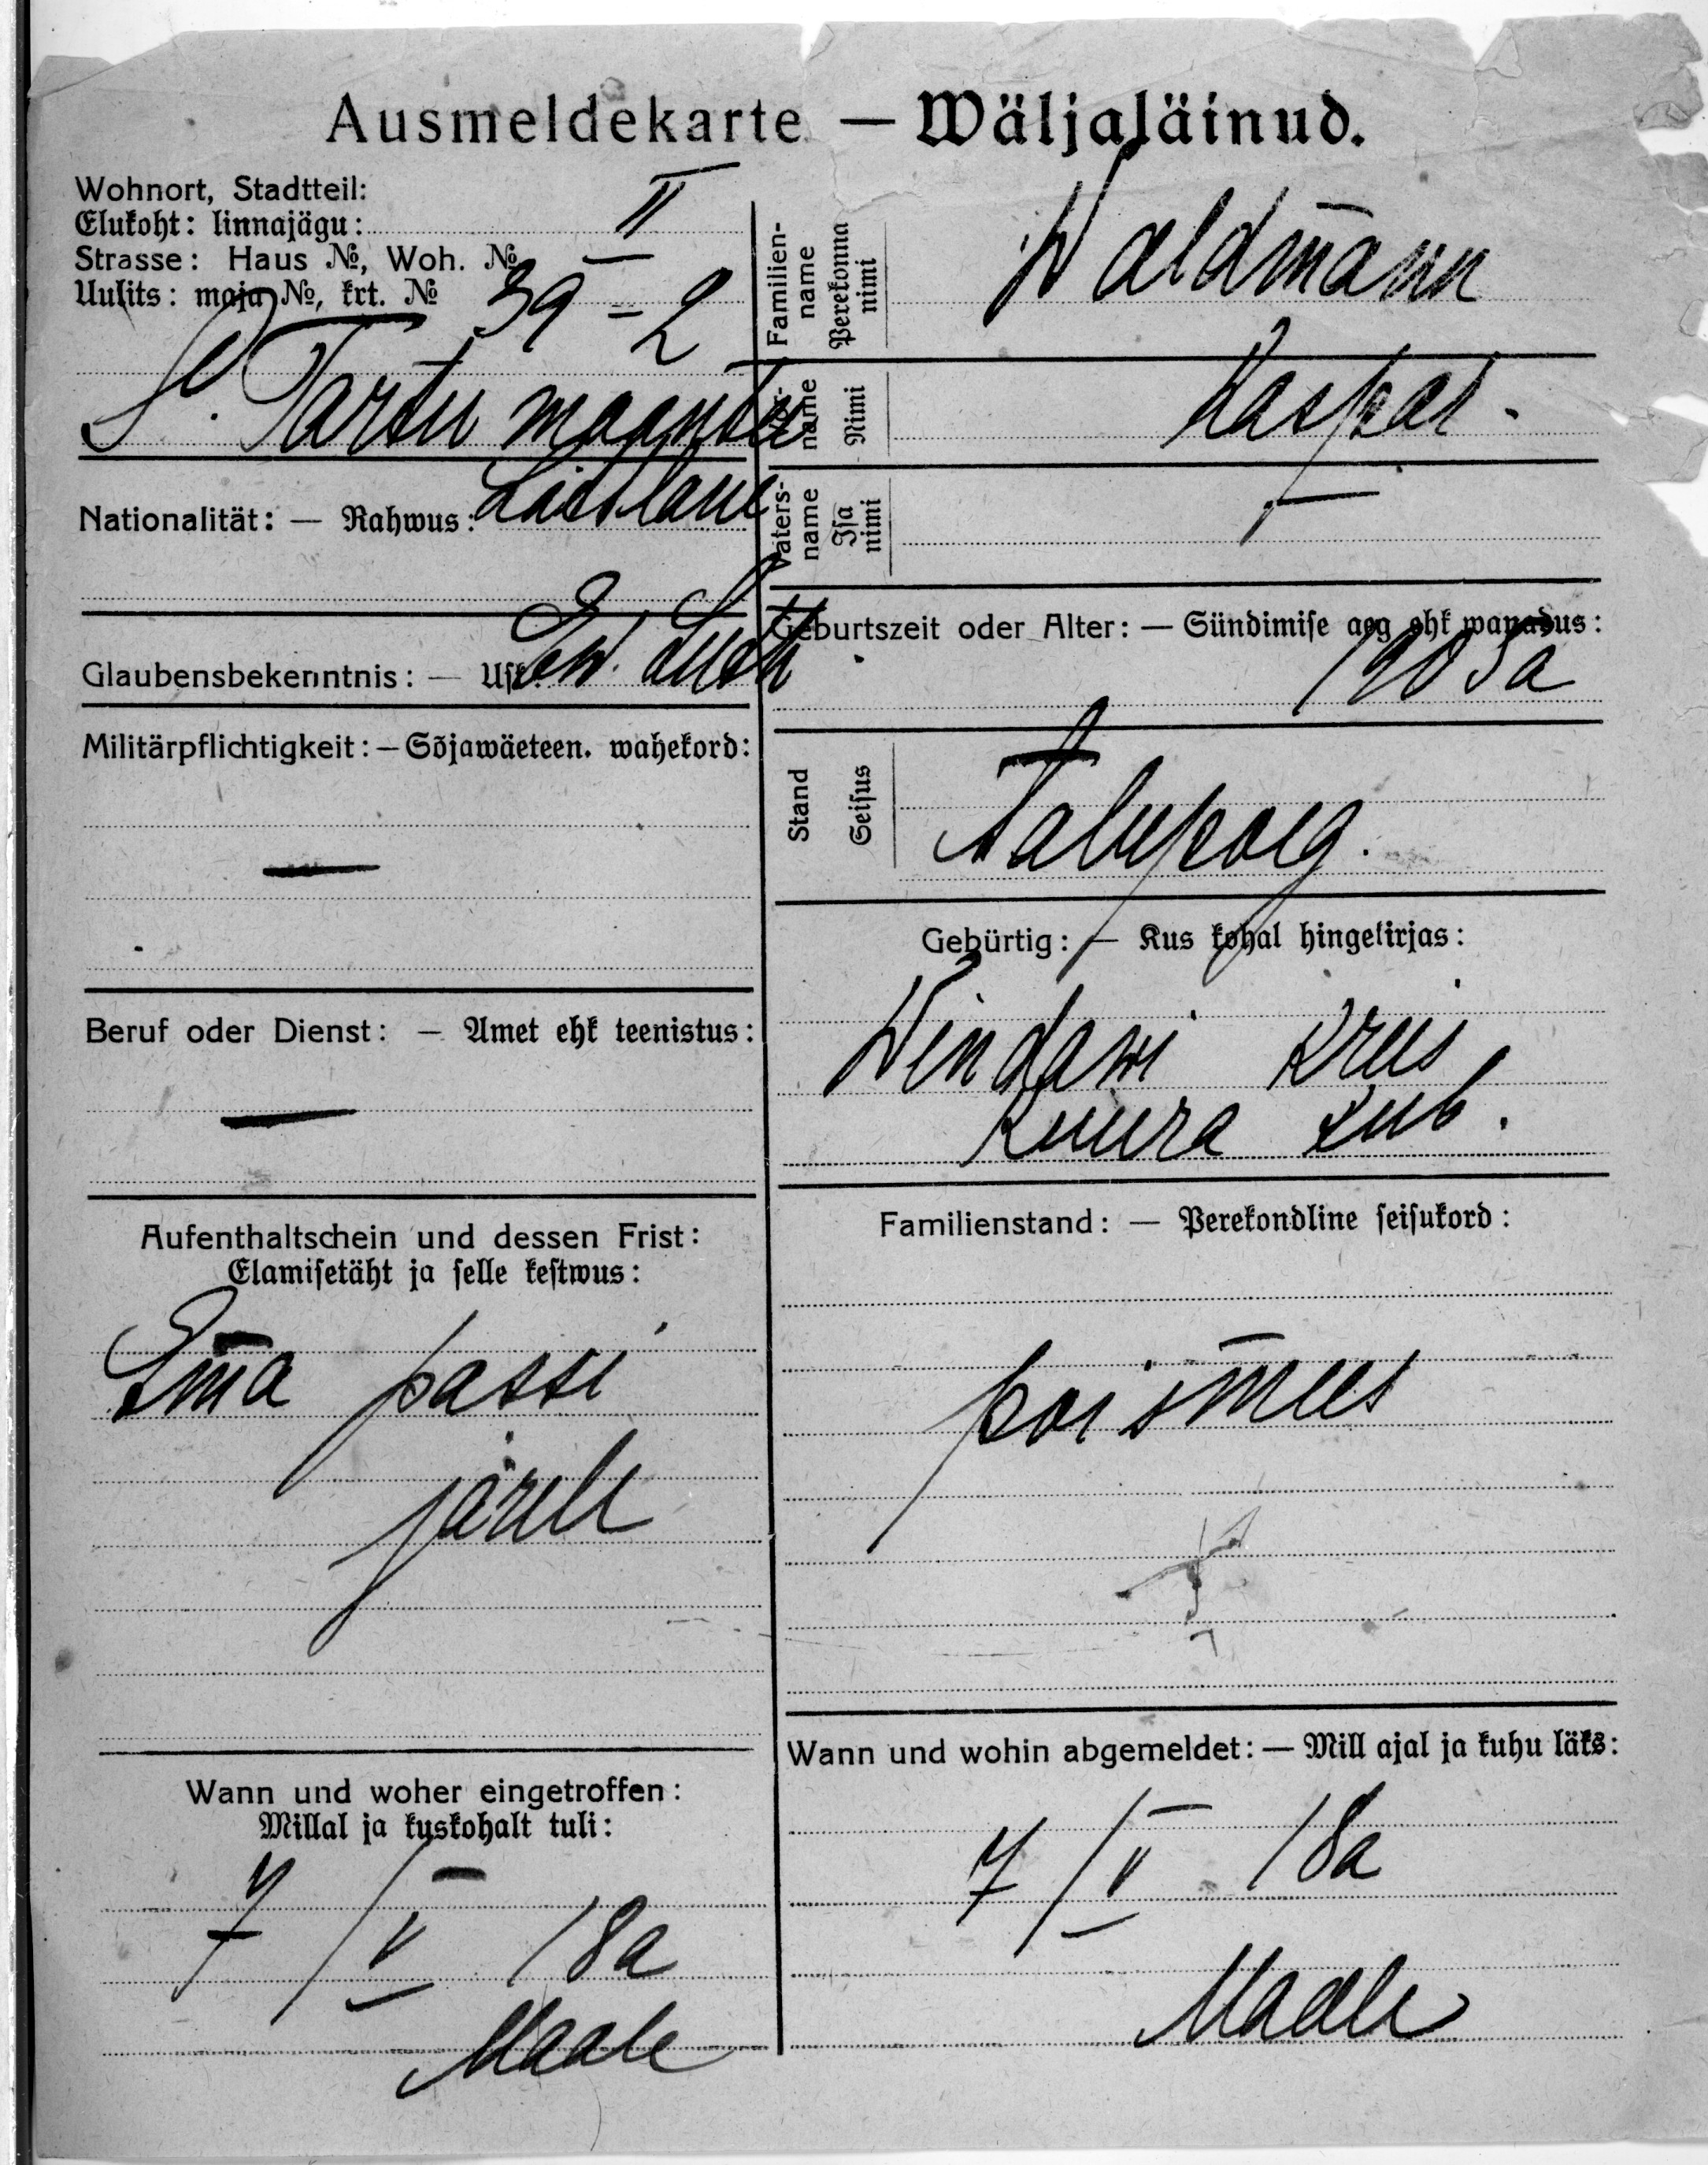 Ausmeldekarte — Wäljaläinud.
Wohnort, Stadtteil:
Elukoht: linnajägu: II
Strasse: Haus №, Woh. №
Uulits: maja №, krt. № 39 = 2
S. Tartu maantee
Nationalität: — Rahwus: Lätlane
Glaubensbekenntnis: — Usk: Ew. Luth
Militärpflichtigkeit: — Sõjawäeteen. wahekord:
—
Beruf oder Dienst: — Amet ehk teenistus:
—
Aufenthaltschein und dessen Frist:
Elamisetäht ja selle kestwus:
Ema passi
järele
Wann und woher eingetroffen:
Millal ja kuskohalt tuli:
7/V 18a
Maale
Familien-
name
Perekonna
nimi
Waldmann
Vor-
name
Nimi
Kaspar.
Vaters-
name
Isa
nimi
—
Geburtszeit oder Alter: — Sündimise aeg ehk wanadus:
1905a
Stand
Seisus
Talupoeg.
Gebürtig: — Kus kohal hingekirjas:
Windawi kreis
Kuura kub.
Familienstand: — Perekondline seisukord:
poismees
Wann und wohin abgemeldet: — Mill ajal ja kuhu läks:
7/V 18a
Maale